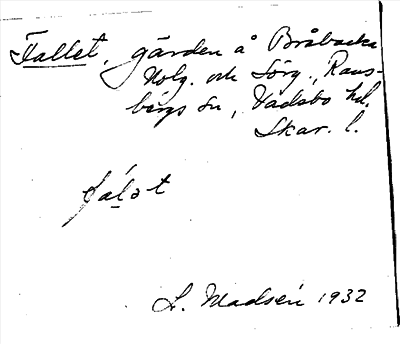 Fallet, gärden å Bråbacka
Holg. och Sörg., Rans-
bergs sn, Vadsbo hd.
Skar. l.
fálət
L. Madsén 1932